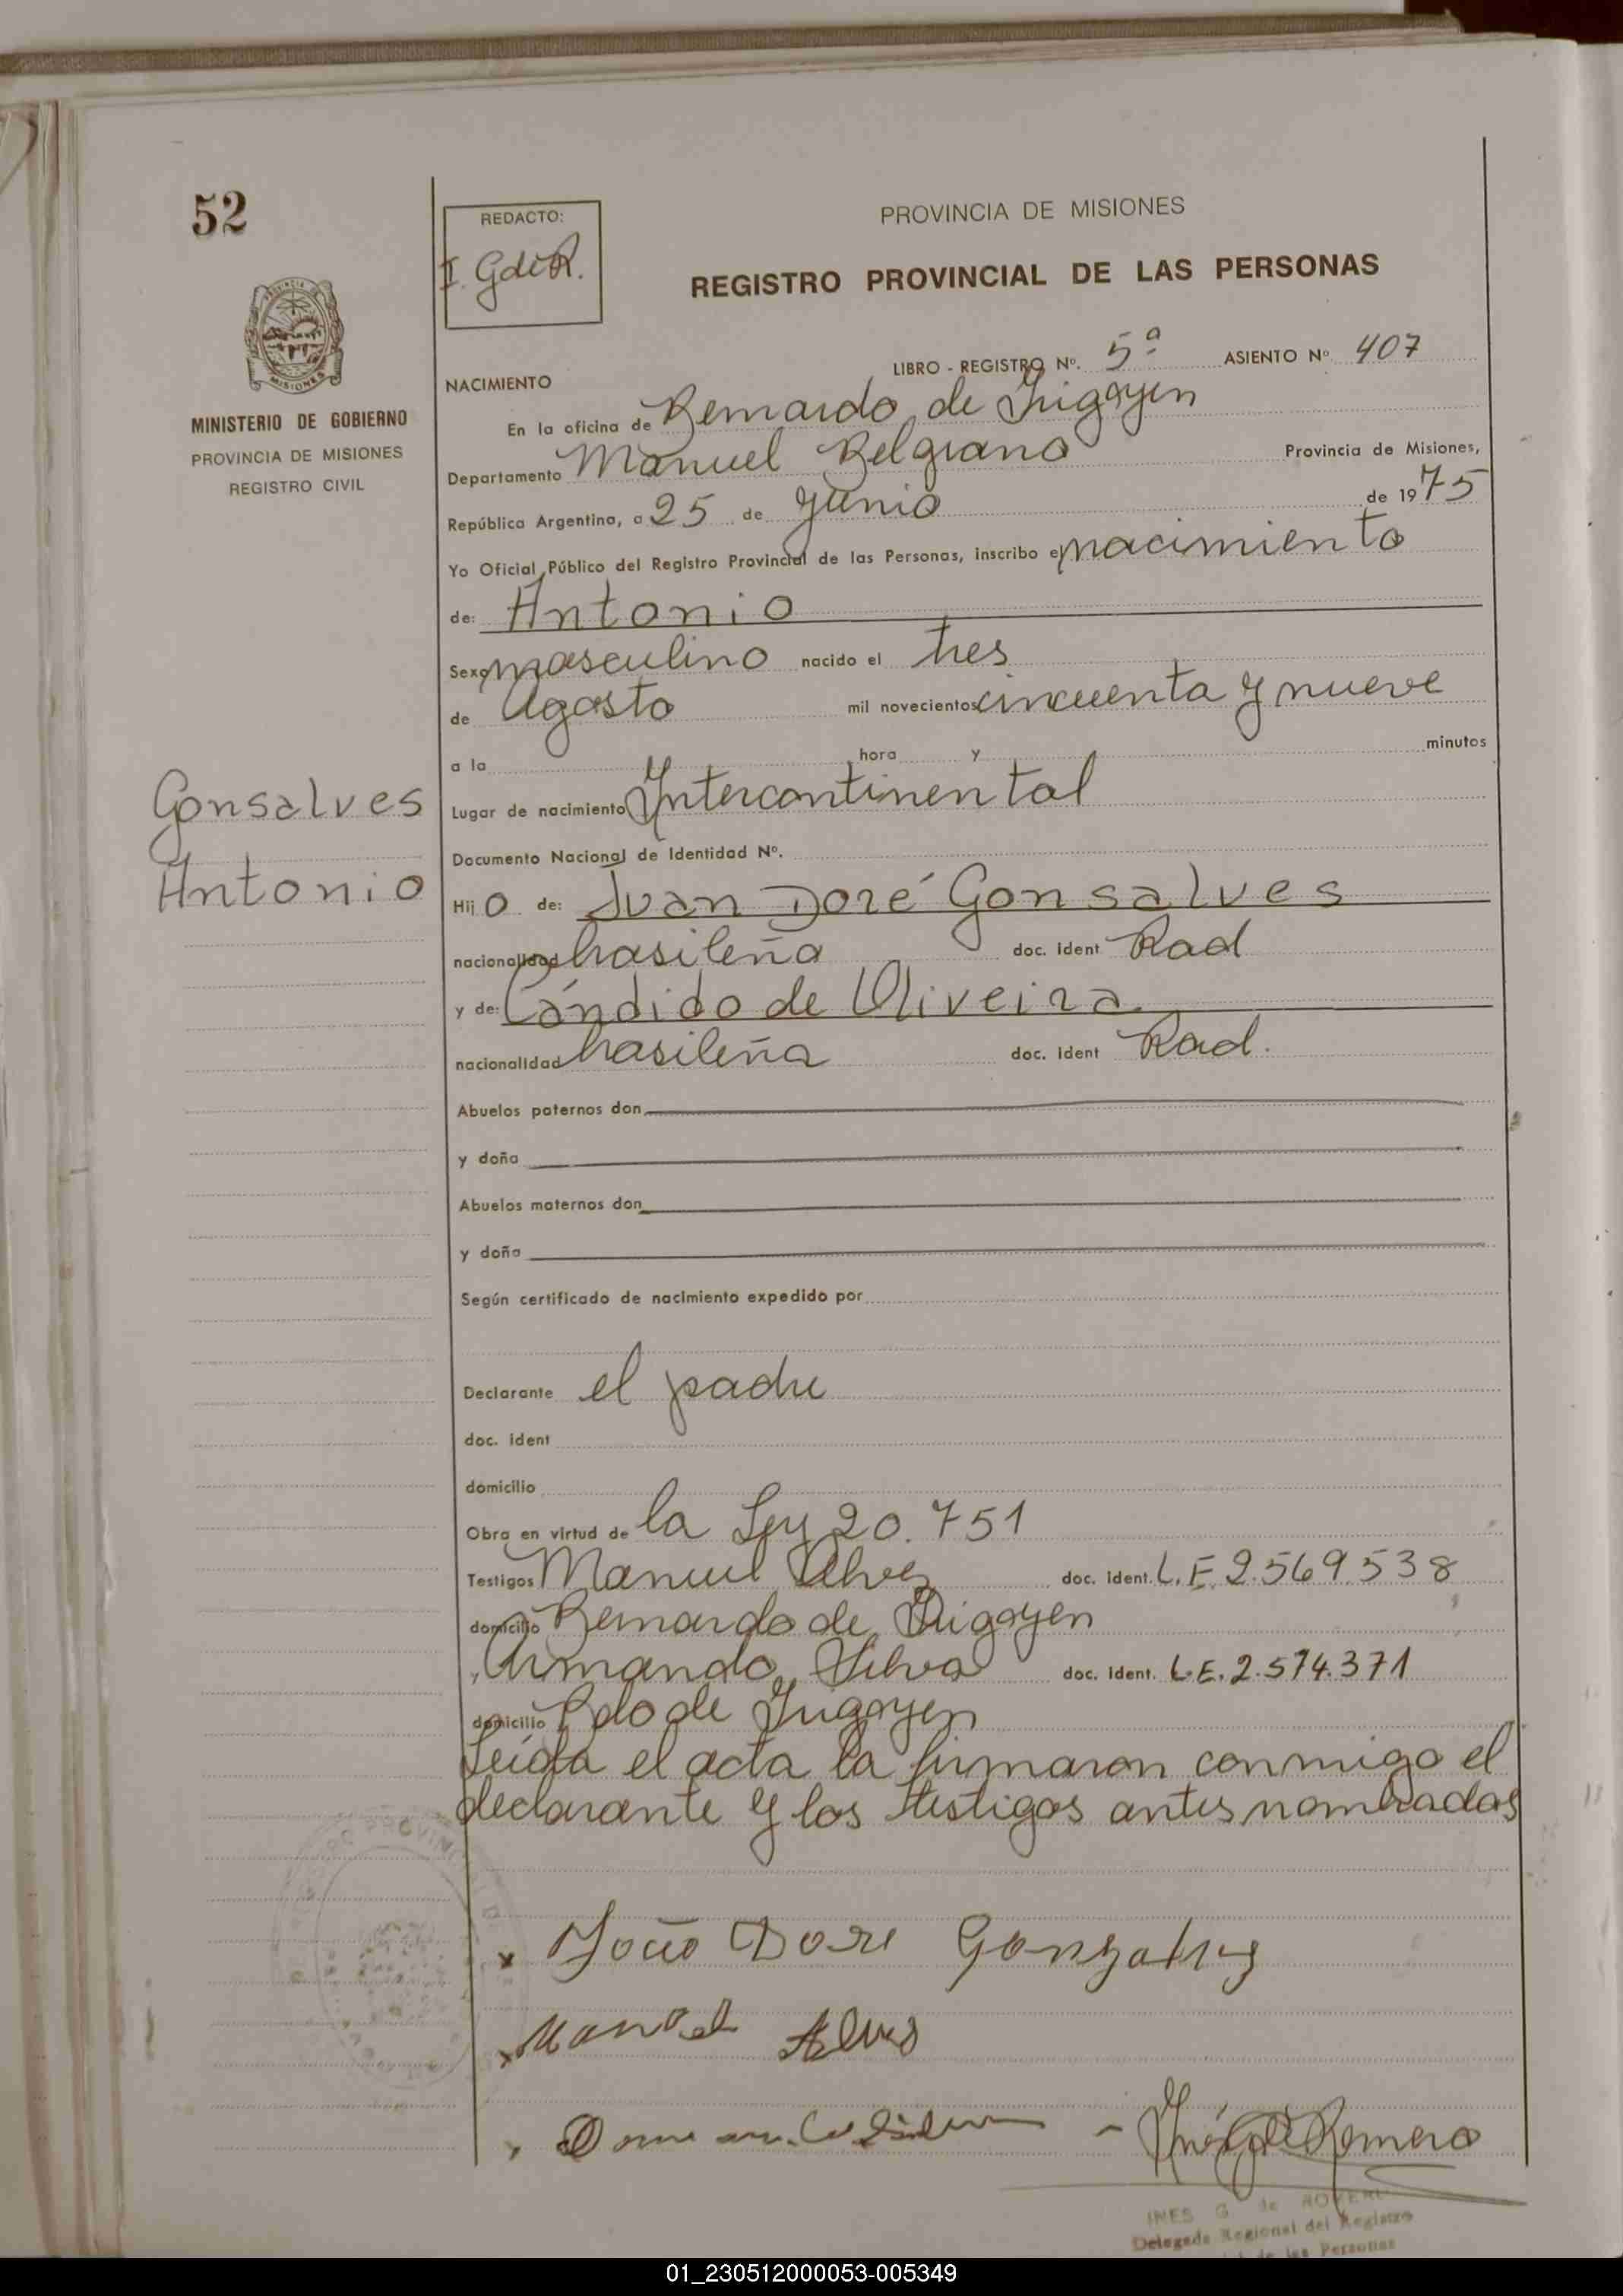 52
MINISTERIO DE GOBIERNO
PROVINCIA DE MISIONES
REGISTRO CIVIL
Gonsalves
Antonio
REDACTO:
I. GdeR.
PROVINCIA DE MISIONES
REGISTRO PROVINCIAL DE LAS PERSONAS
LIBRO - REGISTRO Nº. 5ª ASIENTO Nº 407
NACIMIENTO
En la oficina de Bernardo de Irigoyen
Departamento Manuel Belgrano Provincia de Misiones,
República Argentina, a 25 de Junio de 1975
Yo Oficial Público del Registro Provincial de las Personas, inscribo el nacimiento
de: Antonio
Sexo masculino nacido el tres
de Agosto mil novecientos cincuenta y nueve
a la hora y minutos
Lugar de nacimiento Intercontinental
Documento Nacional de Identidad Nº.
Hijo de: Juan Doré Gonsalves
nacionalidad brasileña doc. ident Rad
y de: Cándido de Oliveira
nacionalidad brasileña doc. ident Rad.
Abuelos paternos don
y doña
Abuelos maternos don
y doña
Según certificado de nacimiento expedido por
Declarante el padre
doc. ident
domicilio
Obra en virtud de la Ley 20.751
Testigos Manuel Alvez doc. ident. L.E. 2.569.538
domicilio Bernardo de Irigoyen
, Armando Silva doc. ident. L.E. 2.574.371
domicilio Bdo de Irigoyen
Leída el acta la firmaron conmigo el
declarante y los testigos antes nombrados
x João Dore Gonzalves
x Manoel Alves
Inés G de Romero
INES G de ROMERO
Delegada Regional del Registro
de las Personas
01_230512000053-005349